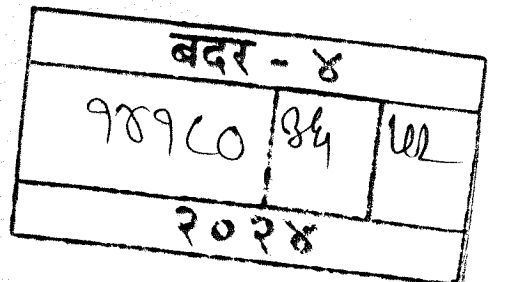 बदर - ४
१४१८० ३६ ५२
२०२४